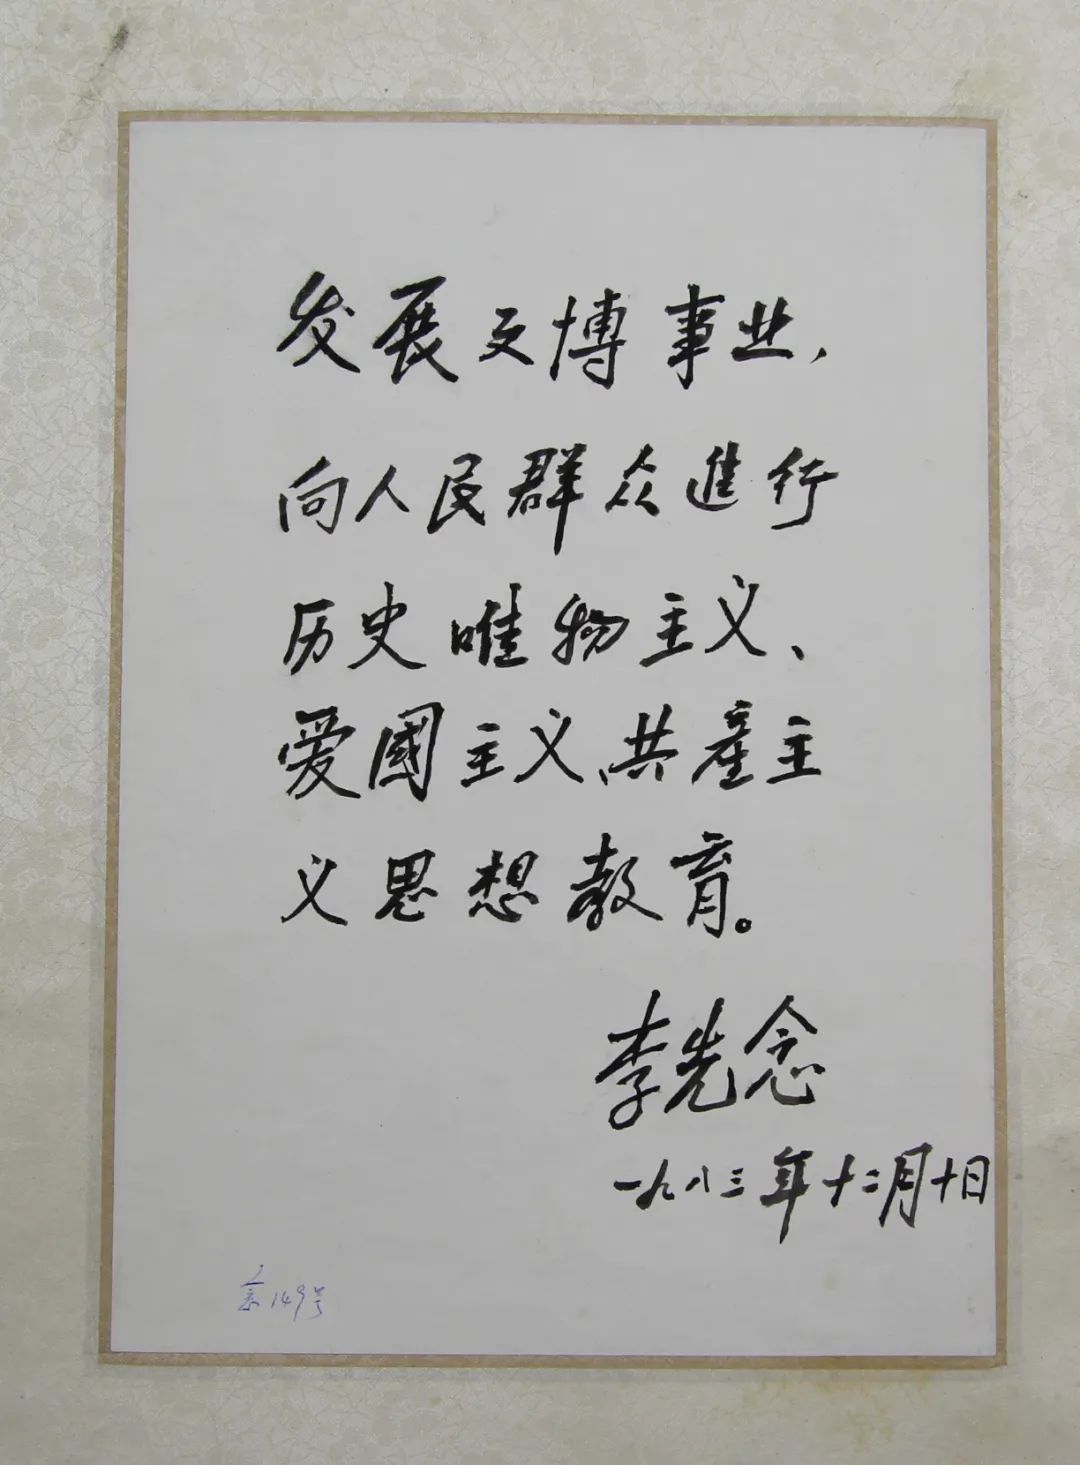 发展文博事业，
向人民群众進行
历史唯物主义、
爱國主义、共產主
义思想教育。
李先念
一九八三年十二月十日
149号